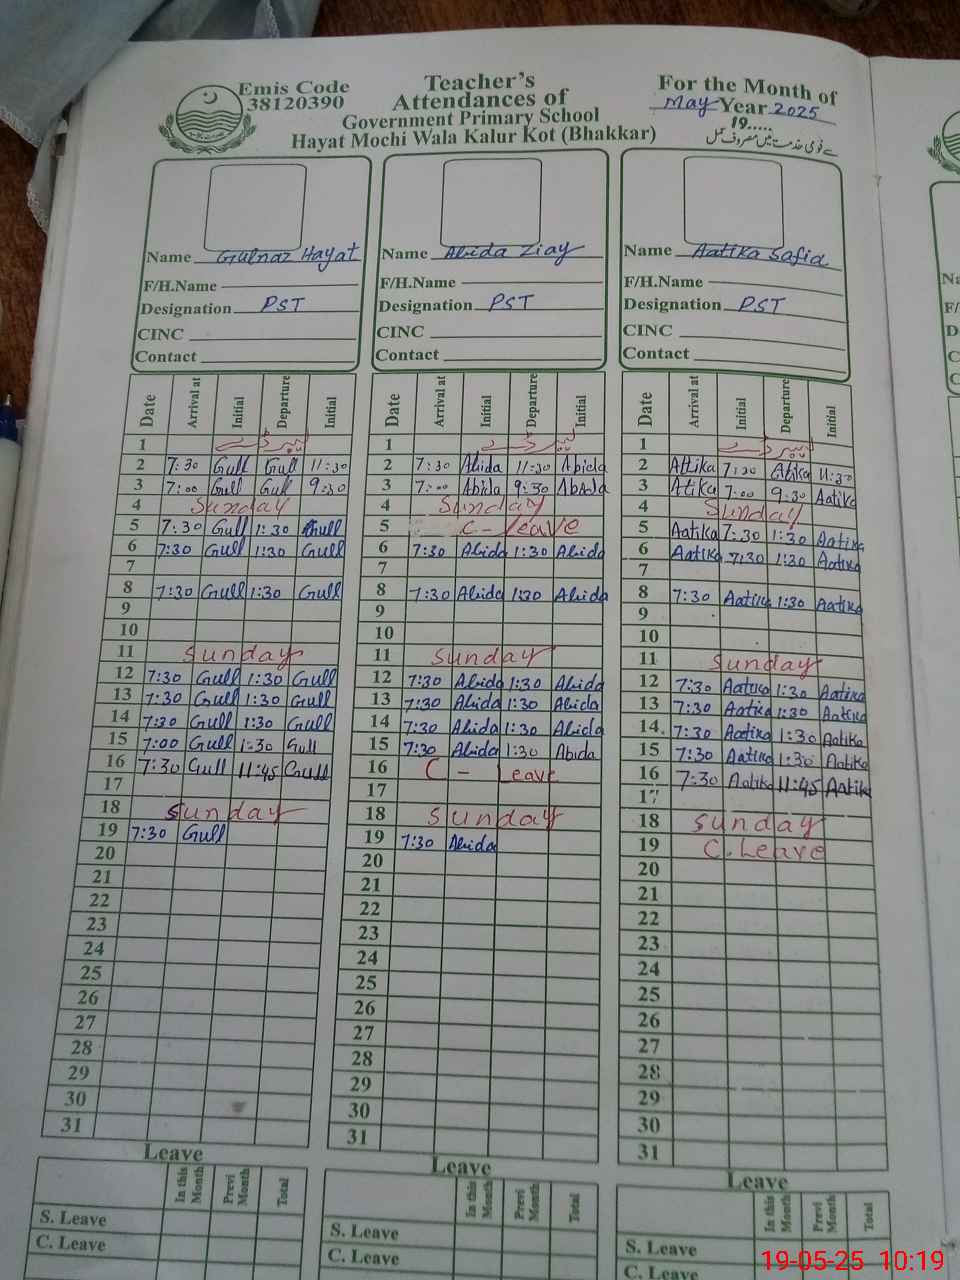 Emis Code
38120390
Teacher's
Attendances of
Government Primary School
Hayat Mochi Wala Kalur Kot (Bhakkar)
For the Month of
May Year 2025
19.....
Name Gulnaz Hayat
F/H.Name
Designation PST
CINC
Contact
Name Abida Ziay
F/H.Name
Designation PST
CINC
Contact
Name Aatika Safia
F/H.Name
Designation PST
CINC
Contact
Date Arrival at Initial Departure Initial
1
2 7:30 Gull Gull 11:30
3 7:00 Gull Gull 9:30
4 Sunday
5 7:30 Gull 1:30 Gull
6 7:30 Gull 1:30 Gull
7
8 7:30 Gull 1:30 Gull
9
10
11 Sunday
12 7:30 Gull 1:30 Gull
13 7:30 Gull 1:30 Gull
14 7:30 Gull 1:30 Gull
15 7:00 Gull 1:30 Gull
16 7:30 Gull 11:45 Gull
17
18 Sunday
19 7:30 Gull
20
21
22
23
24
25
26
27
28
29
30
31
Leave
In this Month Previ Month Total
S. Leave
C. Leave
Date Arrival at Initial Departure Initial
1
2 7:30 Abida 11:30 Abida
3 7:00 Abida 9:30 Abida
4 Sunday
5 C - Leave
6 7:30 Abida 1:30 Abida
7
8 7:30 Abida 1:30 Abida
9
10
11 Sunday
12 7:30 Abida 1:30 Abida
13 7:30 Abida 1:30 Abida
14 7:30 Abida 1:30 Abida
15 7:30 Abida 1:30 Abida
16 C - Leave
17
18 Sunday
19 7:30 Abida
20
21
22
23
24
25
26
27
28
29
30
31
Leave
In this Month Previ Month Total
S. Leave
C. Leave
Date Arrival at Initial Departure Initial
1
2 Attika 7:30 Atika 11:30
3 Atika 7:00 9:30 Aatika
4 Sunday
5 Aatika 7:30 1:30 Aatika
6 Aatika 7:30 1:30 Aatika
7
8 7:30 Aatika 1:30 Aatika
9
10
11 Sunday
12 7:30 Aatika 1:30 Aatika
13 7:30 Aatika 1:30 Aatika
14 7:30 Aatika 1:30 Aatika
15 7:30 Aatika 1:30 Aatika
16 7:30 Aatika 11:45 Aatika
17
18 Sunday
19 C. Leave
20
21
22
23
24
25
26
27
28
29
30
31
Leave
In this Month Previ Month Total
S. Leave
C. Leave
19-05-25 10:19